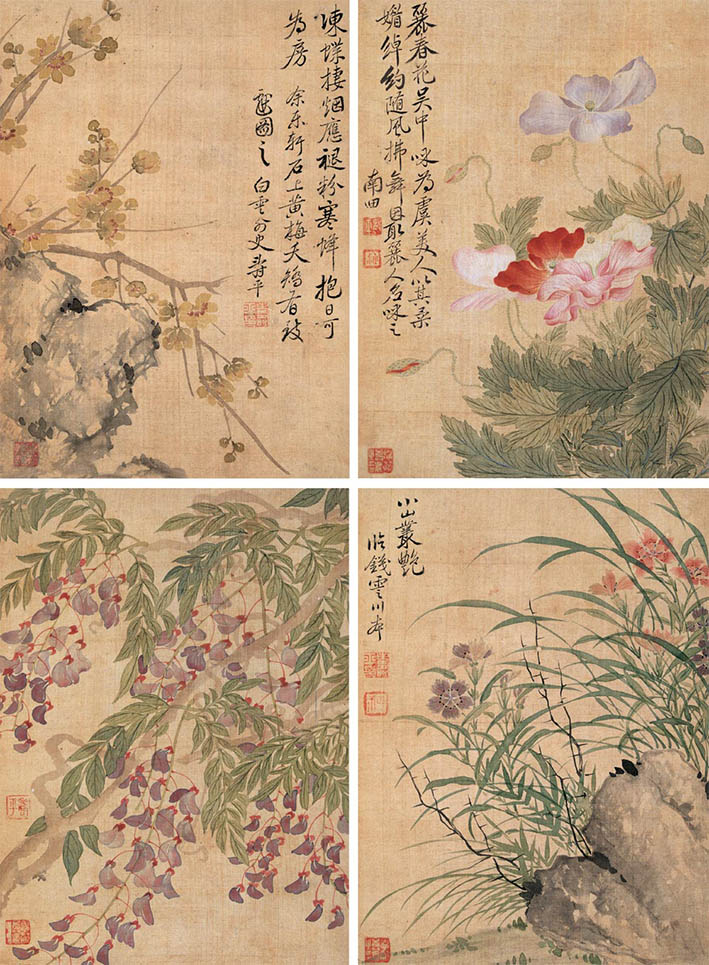 凍蝶棲烟應褪粉寒蜂抱日可
為房 余東軒石上黃梅夭矯有致
戲圖之 白雲外史壽平
麗春花吳中咏為虞美人以其柔
媚綽約隨風拂舞因取麗人名咏之
南田
小山叢艷
臨錢霅川本